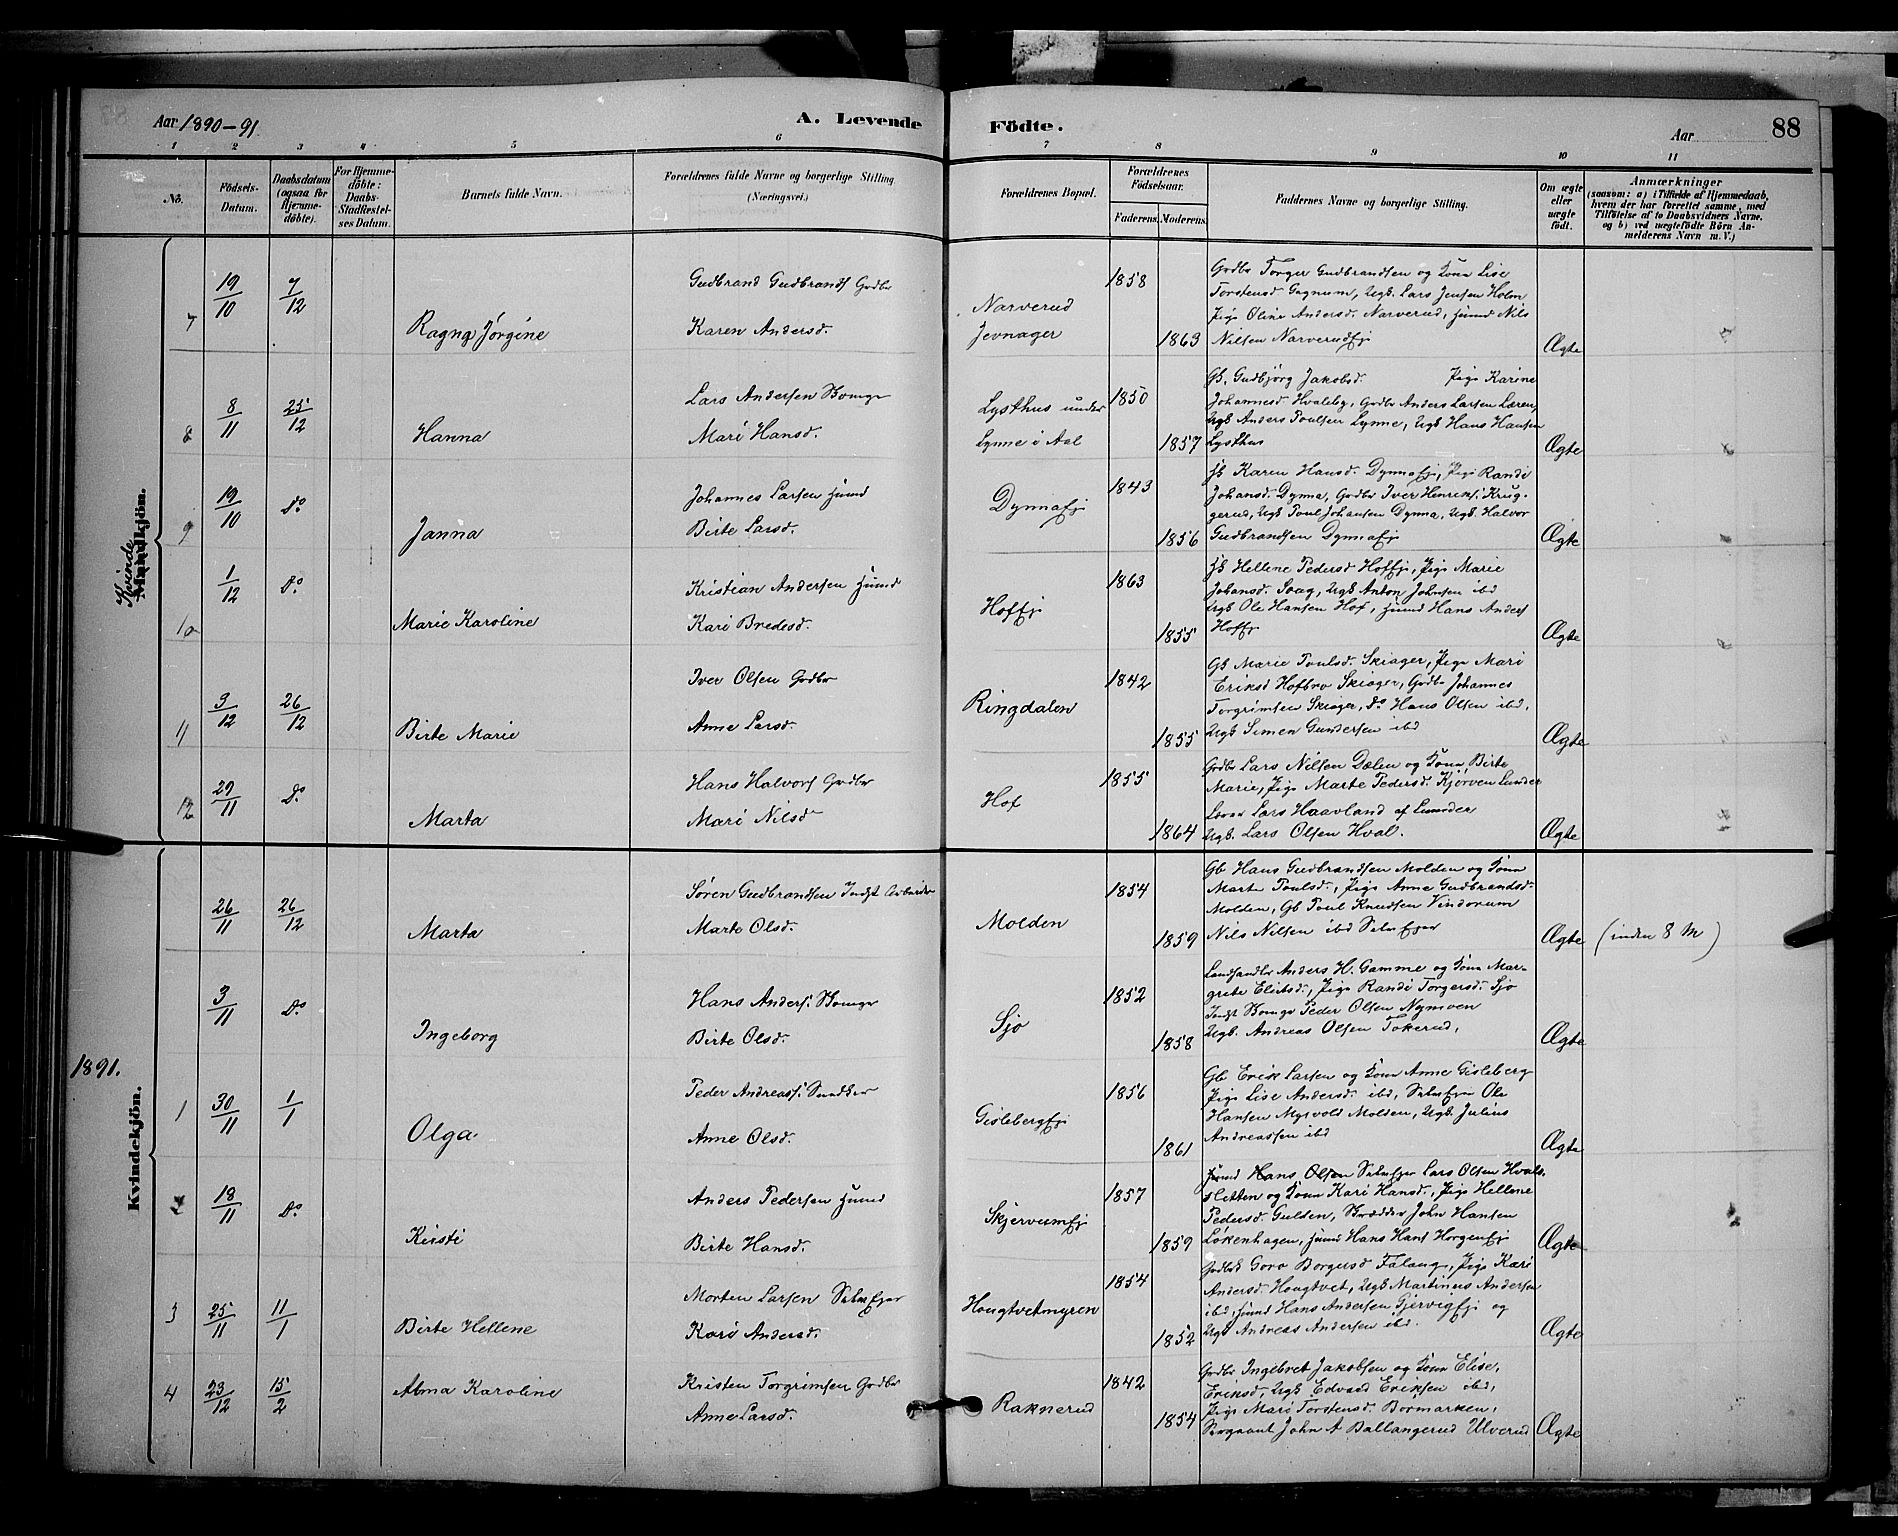 Aar 1890-91. A. Levende Födte. Aar 88
1 2 3 4 5 6 7 8 9 10 11
No.
Födsels-Datum.
Daabsdatum (ogsaa for Hjemmedöbte).
For Hjemmedöbte: Daabs-Stadfæstelses Datum.
Barnets fulde Navn.
Forældrenes fulde Navne og borgerlige Stilling. (Næringsvei.)
Forældrenes Bopæl.
Forældrenes Födselsaar.
Faderens. Moderens.
Faddernes Navne og borgerlige Stilling.
Om ægte eller uægte födt.
Anmærkninger
(saasom: a) i Tilfælde af Hjemmedaab, hvem der har forrettet samme, med Tilföielse af to Daabsvidners Navne, og b) ved uægtefödte Börn Anmelderens Navn m. V.)
Kvinde Mandkjön.
7 19/10 7/12 Ragna Jørgine
Gudbrand Gudbrands Grdbr
Karen Andersd.
Narverud
Jevnager
1858
1863
Grdbr Torger Gudbrandsen og Kone Lise
Torstensd Gagnum, Ugk. Lars Jensen Holm
Pige Oline Andersd. Narverud, Husmd Nils
Nilsen Narverudej
Ægte
8 8/11 25/12 Hanna
Lars Andersen
Mari Hansd.
Lysthus under
Lynne i Aal
1850
1857
Gk. Gudbjørg Jakobsd. Pige Karine
Johannesd Hvaleby, Grdbr Anders Larsen Læren
Ugk Anders Poulsen Lynne, Ugk Hans Hansen
Lysthus
Ægte
9 19/10 Do Janna
Johannes Larsen Husmd
Birte Larsd.
Dynnaej
1843
1856
Hk Karen Hansd. Dynnaej, Pige Randi
Johansd. Dynna, Grdbr Iver Henriks. Krug-
gerud, Ugk Poul Johansen Dynna, Ugk. Halvor
Gudbrandsen Dynnaej
Ægte
10 1/12 Do Marie Karoline
Kristian Andersen Husmd
Kari Bredesd.
Hoffej
1863
1855
Hk Hellene Pedersd Hoffej, Pige Marie
Johansd. Soag, Ugk Anton Johnsen ibd
Ugk Ole Hansen Hof, Husmd Hans Anders
Hoffej
Ægte
11 3/12 26/12 Birte Marie
Iver Olsen Grdbr
Anne Larsd.
Ringdalen
1842
1855
Gk Marie Poulsd. Skiager, Pige Mari
Eriksd Hofbro Skiager, Grdbr Johannes
Torgrimsen Skiager, Do Hans Olsen ibd,
Ugk Simen Gundersen ibd
Ægte
12 29/11 Do Marta
Hans Halvors Grdbr
Mari Nilsd
Hof
1855
1864
Grdbr Lars Nilsen Dælen og Kone Birte
Marie, Pige Marte Pedersd. Kjørven Lunder
Lars Haavland af Lunder
Ugk. Lars Olsen Hval.
Ægte
26/11 26/12 Marta
Søren Gudbrandsen Indst Arbeider
Marte Olsd.
Molden
1854
1859
Gb Hans Gudbrandsen Molden og Kone
Marte Poulsd., Pige Anne Gudbrandsd.
Molden, Gb Poul Knudsen Vindorum
Nils Nilsen ibd Selvejer
Ægte (inden 8 M)
3/11 Do Ingeborg
Hans Anders.
Birte Olsd.
Sjo
1852
1858
Landhandler Anders H. Gamme og Kone Mar-
grete Elitsd., Pige Randi Torgersd. Sjo
Indst Peder Olsen Nymoen
Ugk. Andreas Olsen Tokerud,
Ægte
1891.
Kvindekjön.
1 30/11 1/1 Olga
Peder Andreass. Snedker
Anne Olsd.
Gislebergej
1856
1861
Gb Erik Larsen og Kone Anne Gisleberg
Pige Lise Andersd. ibd, Selvejer Ole
Hansen Myrvold Molden, Ugk. Julius
Andreassen ibd
Ægte
2 18/11 Do Kirsti
Anders Pedersen Husmd
Birte Hansd.
Skjervumej
1857
1859
Husmd Hans Olsen Selvejer Lars Olsen Hvals-
sletten og Kone Kari Hansd., Pige Hellene
Pedersd. Gulden, John Hansen
Løkenhagen, Husmd Hans Hans Horgenej
Ægte
3 25/11 11/1 Birte Hellene
Morten Larsen Selvejer
Kari Andersd.
Hougtvetmyren
1854
1852
Goro Borgersd Falang, Pige Kari
Andersd. Hougtvet, Ugk Martinus Andersen
ibd, Husmd Hans Andersen Gjervigej og
Ugk Andreas Andersen ibd.
Ægte
4 23/12 15/2 Alma Karoline
Kristen Torgrimsen Grdbr
Anne Larsd.
Raknerud
1842
1854
Grdbr Ingebret Jakobsen og Kone Elise,
Eriksd, Ugk Edvard Eriksen ibd,
Pige Mari Torstensd. Bormarken,
Sergeant John A Ballangerud Ulverud
Ægte